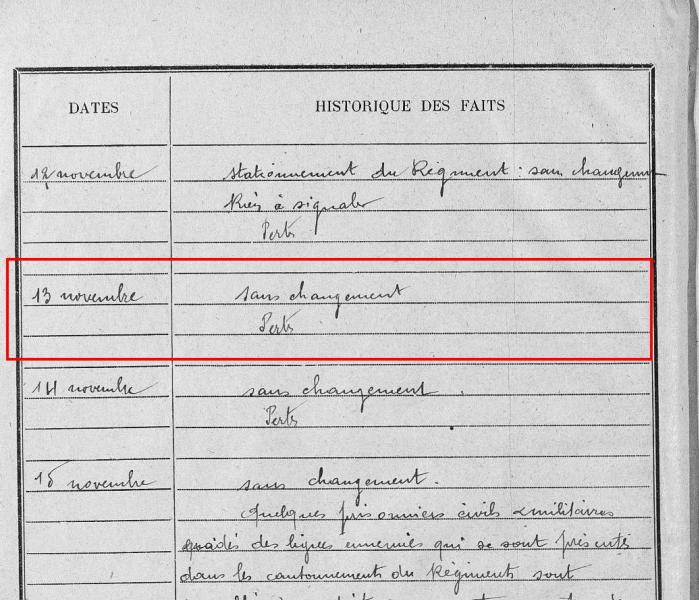 DATES
HISTORIQUE DES FAITS
12 novembre
Stationnement du Régiment : sans changement
Rien à signaler
Pertes
13 novembre
sans changement
Pertes
14 novembre
sans changement.
Pertes
15 novembre
sans changement.
Quelques prisonniers civils & militaires
évadés des lignes ennemies qui se sont présentés
dans les cantonnements du Régiment sont